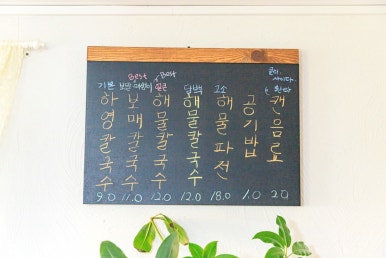 기본
하영칼국수
9.0
Best
보말 매생이
보매칼국수
11.0
Best
얼큰
해물칼국수
12.0
담백
해물칼국수
12.0
고소
해물파전
18.0
공기밥
1.0
콜라
사이다
환타
캔음료
2.0